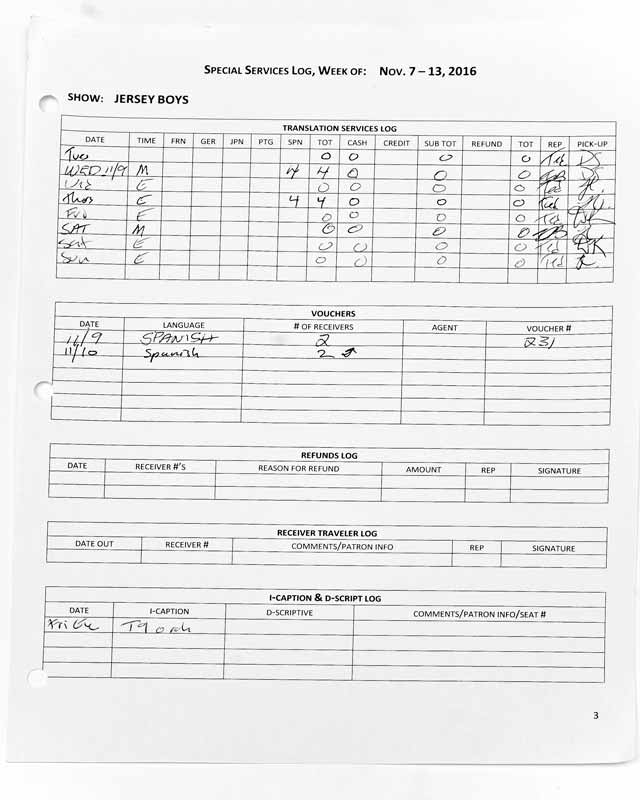 SPECIAL SERVICES LOG, WEEK OF: NOV. 7 – 13, 2016
SHOW: JERSEY BOYS
TRANSLATION SERVICES LOG
DATE TIME FRN GER JPN PTG SPN TOT CASH CREDIT SUB TOT REFUND TOT REP PICK-UP
Tue 0 0 0 0 Ted
WED 11/9 M 4 4 0 0 0
E 0 0 0 0 Ted
Thur E 4 4 0 0 0 Ted
Fri E 0 0 0 0 Ted
SAT M 0 0 0 0
Sat E 0 0 0 0 Ted
Sun E 0 0 0 0 Ted
VOUCHERS
DATE LANGUAGE # OF RECEIVERS AGENT VOUCHER #
11/9 SPANISH 2 231
11/10 Spanish 2
REFUNDS LOG
DATE RECEIVER #'S REASON FOR REFUND AMOUNT REP SIGNATURE
RECEIVER TRAVELER LOG
DATE OUT RECEIVER # COMMENTS/PATRON INFO REP SIGNATURE
I-CAPTION & D-SCRIPT LOG
DATE I-CAPTION D-SCRIPTIVE COMMENTS/PATRON INFO/SEAT #
Fri Eve
3